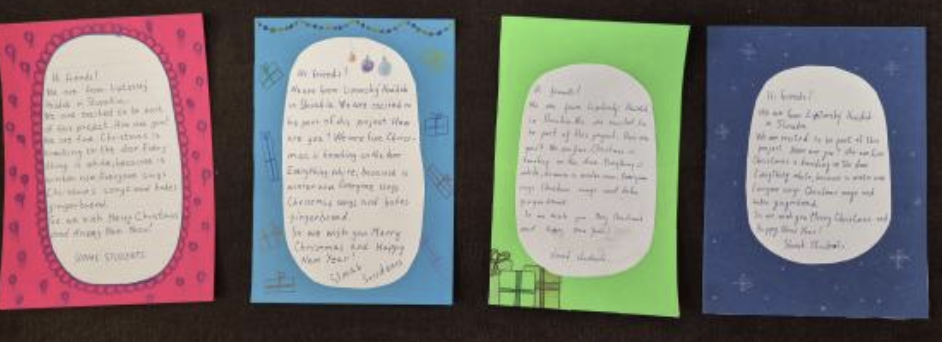 Hi friends!
We are from Liptovský
Hrádok in Slovakia.
We are excited to be part
of this project. How are you?
We are fine. Christmas is
knocking on the door. Every
thing is white, because is
winter now. Everyone sings
Christmas songs and bakes
gingerbread.
So we wish Merry Christmas
and Happy New Year!
Hi friends!
We are from Liptovský Hrádok
in Slovakia. We are excited to
be part of this project. How
are you? We are fine. Christ-
mas is knocking on the door.
Everything white, because is
winter now. Everyone sings
Christmas songs and bakes
gingerbread.
So we wish you Merry
Christmas and Happy
New Year!
Slovak
students
Hi friends!
We are from Liptovský Hrádok
in Slovakia. We are excited to
be part of this project. How are
you? We are fine. Christmas is
knocking on the door. Everything is
white, because is winter now. Everyone
sings Christmas songs and bakes
gingerbread.
So we wish you Merry Christmas
and Happy New Year!
Slovak students
Hi friends!
We are from Liptovský Hrádok
in Slovakia.
We are excited to be part of this
project. How are you? We are fine.
Christmas is knocking on the door.
Everything white, because is winter now.
Everyone sings Christmas songs and
bakes gingerbread.
So we wish you Merry Christmas and
Happy New Year!
Slovak Students